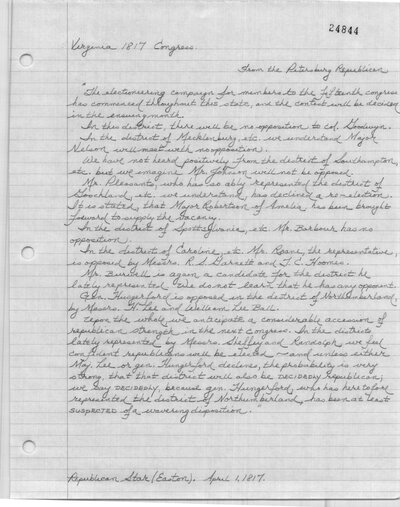 24844
Virginia 1817 Congress
From the Petersburg Republican
"The electioneering campaign for members to the fifteenth congress
has commenced throughout this state, and the contest will be decided
in the ensuing month.
In this district, there will be no opposition to col. Goodwyn.
In the district of Mecklenburg, etc. we understand Major
Nelson will meet with no opposition.
We have not heard positively from the district of Southampton,
etc. but we imagine Mr. Johnson will not be opposed.
Mr. Pleasants, who has so ably represented the district of
Goochland, etc. we understand, has declined a reelection.
It is stated, that Major Robertson of Amelia has been brought
forward to supply the vacancy.
In the district of Spottsylvania, etc. Mr. Barbour has no
opposition.
In the district of Caroline, etc. Mr. Roane, the representative,
is opposed by Messrs. R. S. Garnett and J. C. Hoomes.
Mr. Burwell is again a candidate for the district he
lately represented. We do not learn that he has any opponent.
Gen. Hungerford is opposed in the district of Northumberland,
by Messrs. H. Lee and William Lee Ball.
Upon the whole we anticipate a considerable accession of
republican strength in the next congress. In the districts
lately represented by Messrs. Sheffey and Randolph we feel
confident republicans will be elected -- and unless either
Maj. Lee or gen. Hungerford declines, the probability is very
strong, that that district will also be DECIDEDLY republican;
we say DECIDEDLY, because gen. Hungerford, who has heretofore
represented the district of Northumberland, has been at least
SUSPECTED of a wavering disposition."
Republican Star (Easton). April 1, 1817.